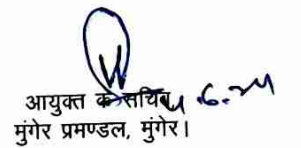 आयुक्त के सचिव
मुंगेर प्रमण्डल, मुंगेर।